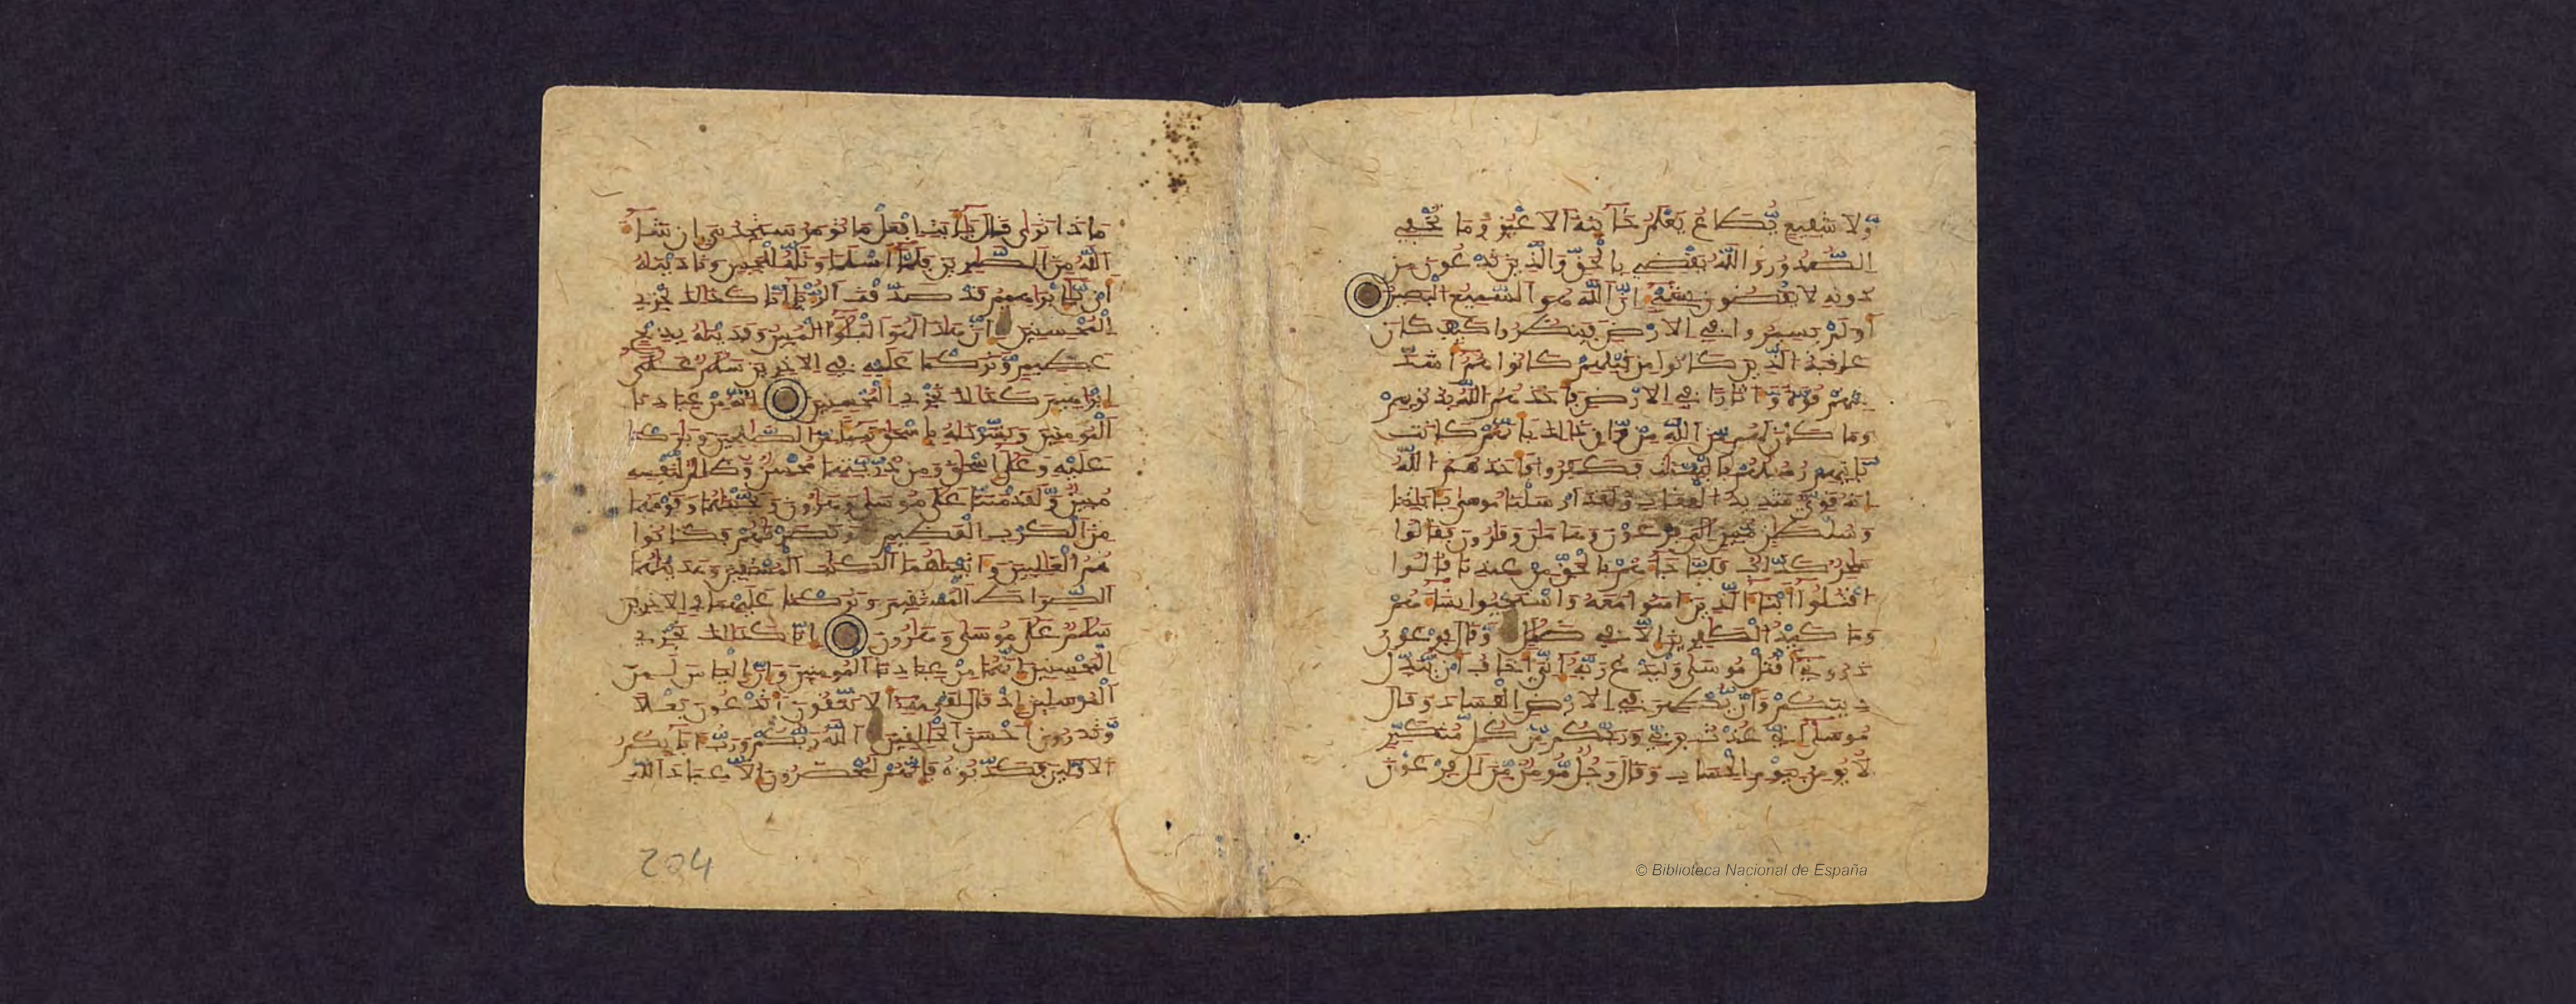 ولا شفيع يطاع يعلم خاينة الاعين وما تخفي
الصدور والله يقضي بالحق والذين تدعون من
دونه لا يقضون بشيء ان الله هو السميع البصير
اولم يسيروا في الارض فينظروا كيف كان
عاقبة الذين كانوا من قبلهم كانوا هم اشد
منهم قوة وءاثارا في الارض فاخذهم الله بذنوبهم
وما كان لهم من الله من واق ذالك بانهم كانت
تاتيهم رسلهم بالبينات فكفروا فاخذهم الله
انه قوي شديد العقاب ولقد ارسلنا موسى بـٔاياتنا
وسلطان مبين الى فرعون وهامان وقارون فقالوا
ساحر كذاب فلما جاءهم بالحق من عندنا قالوا
اقتلوا ابناء الذين ءامنوا معه واستحيوا نساءهم
وما كيد الكافرين الا في ضلال وقال فرعون
ذروني اقتل موسى وليدع ربه اني اخاف ان يبدل
دينكم وان يظهر في الارض الفساد وقال
موسى اني عذت بربي وربكم من كل متكبر
لا يومن بيوم الحساب وقال رجل مومن من ءال فرعون
ماذا ترى قال يا ابت افعل ما تومر ستجدني ان شاء
الله من الصابرين فلما اسلما وتله للجبين وناديناه
ان يا ابراهيم قد صدقت الرءيا انا كذالك نجزي
المحسنين ان هاذا لهو البلاء المبين وفديناه بذبح
عظيم وتركنا عليه في الاخرين سلام على
ابراهيم كذالك نجزي المحسنين انه من عبادنا
المومنين وبشرناه باسحاق نبيا من الصالحين وباركنا
عليه وعلى اسحاق ومن ذريتهما محسن وظالم لنفسه
مبين ولقد مننا على موسى وهارون ونجيناهما وقومهما
من الكرب العظيم ونصرناهم فكانوا
هم الغالبين وءاتيناهما الكتاب المستبين وهديناهما
الصراط المستقيم وتركنا عليهما في الاخرين
سلام على موسى وهارون انا كذالك نجزي
المحسنين انهما من عبادنا المومنين وان الياس لمن
المرسلين اذ قال لقومه الا تتقون اتدعون بعلا
وتذرون احسن الخالقين الله ربكم ورب ءابايكم
الاولين فكذبوه فانهم لمحضرون الا عباد الله
204
© Biblioteca Nacional de España